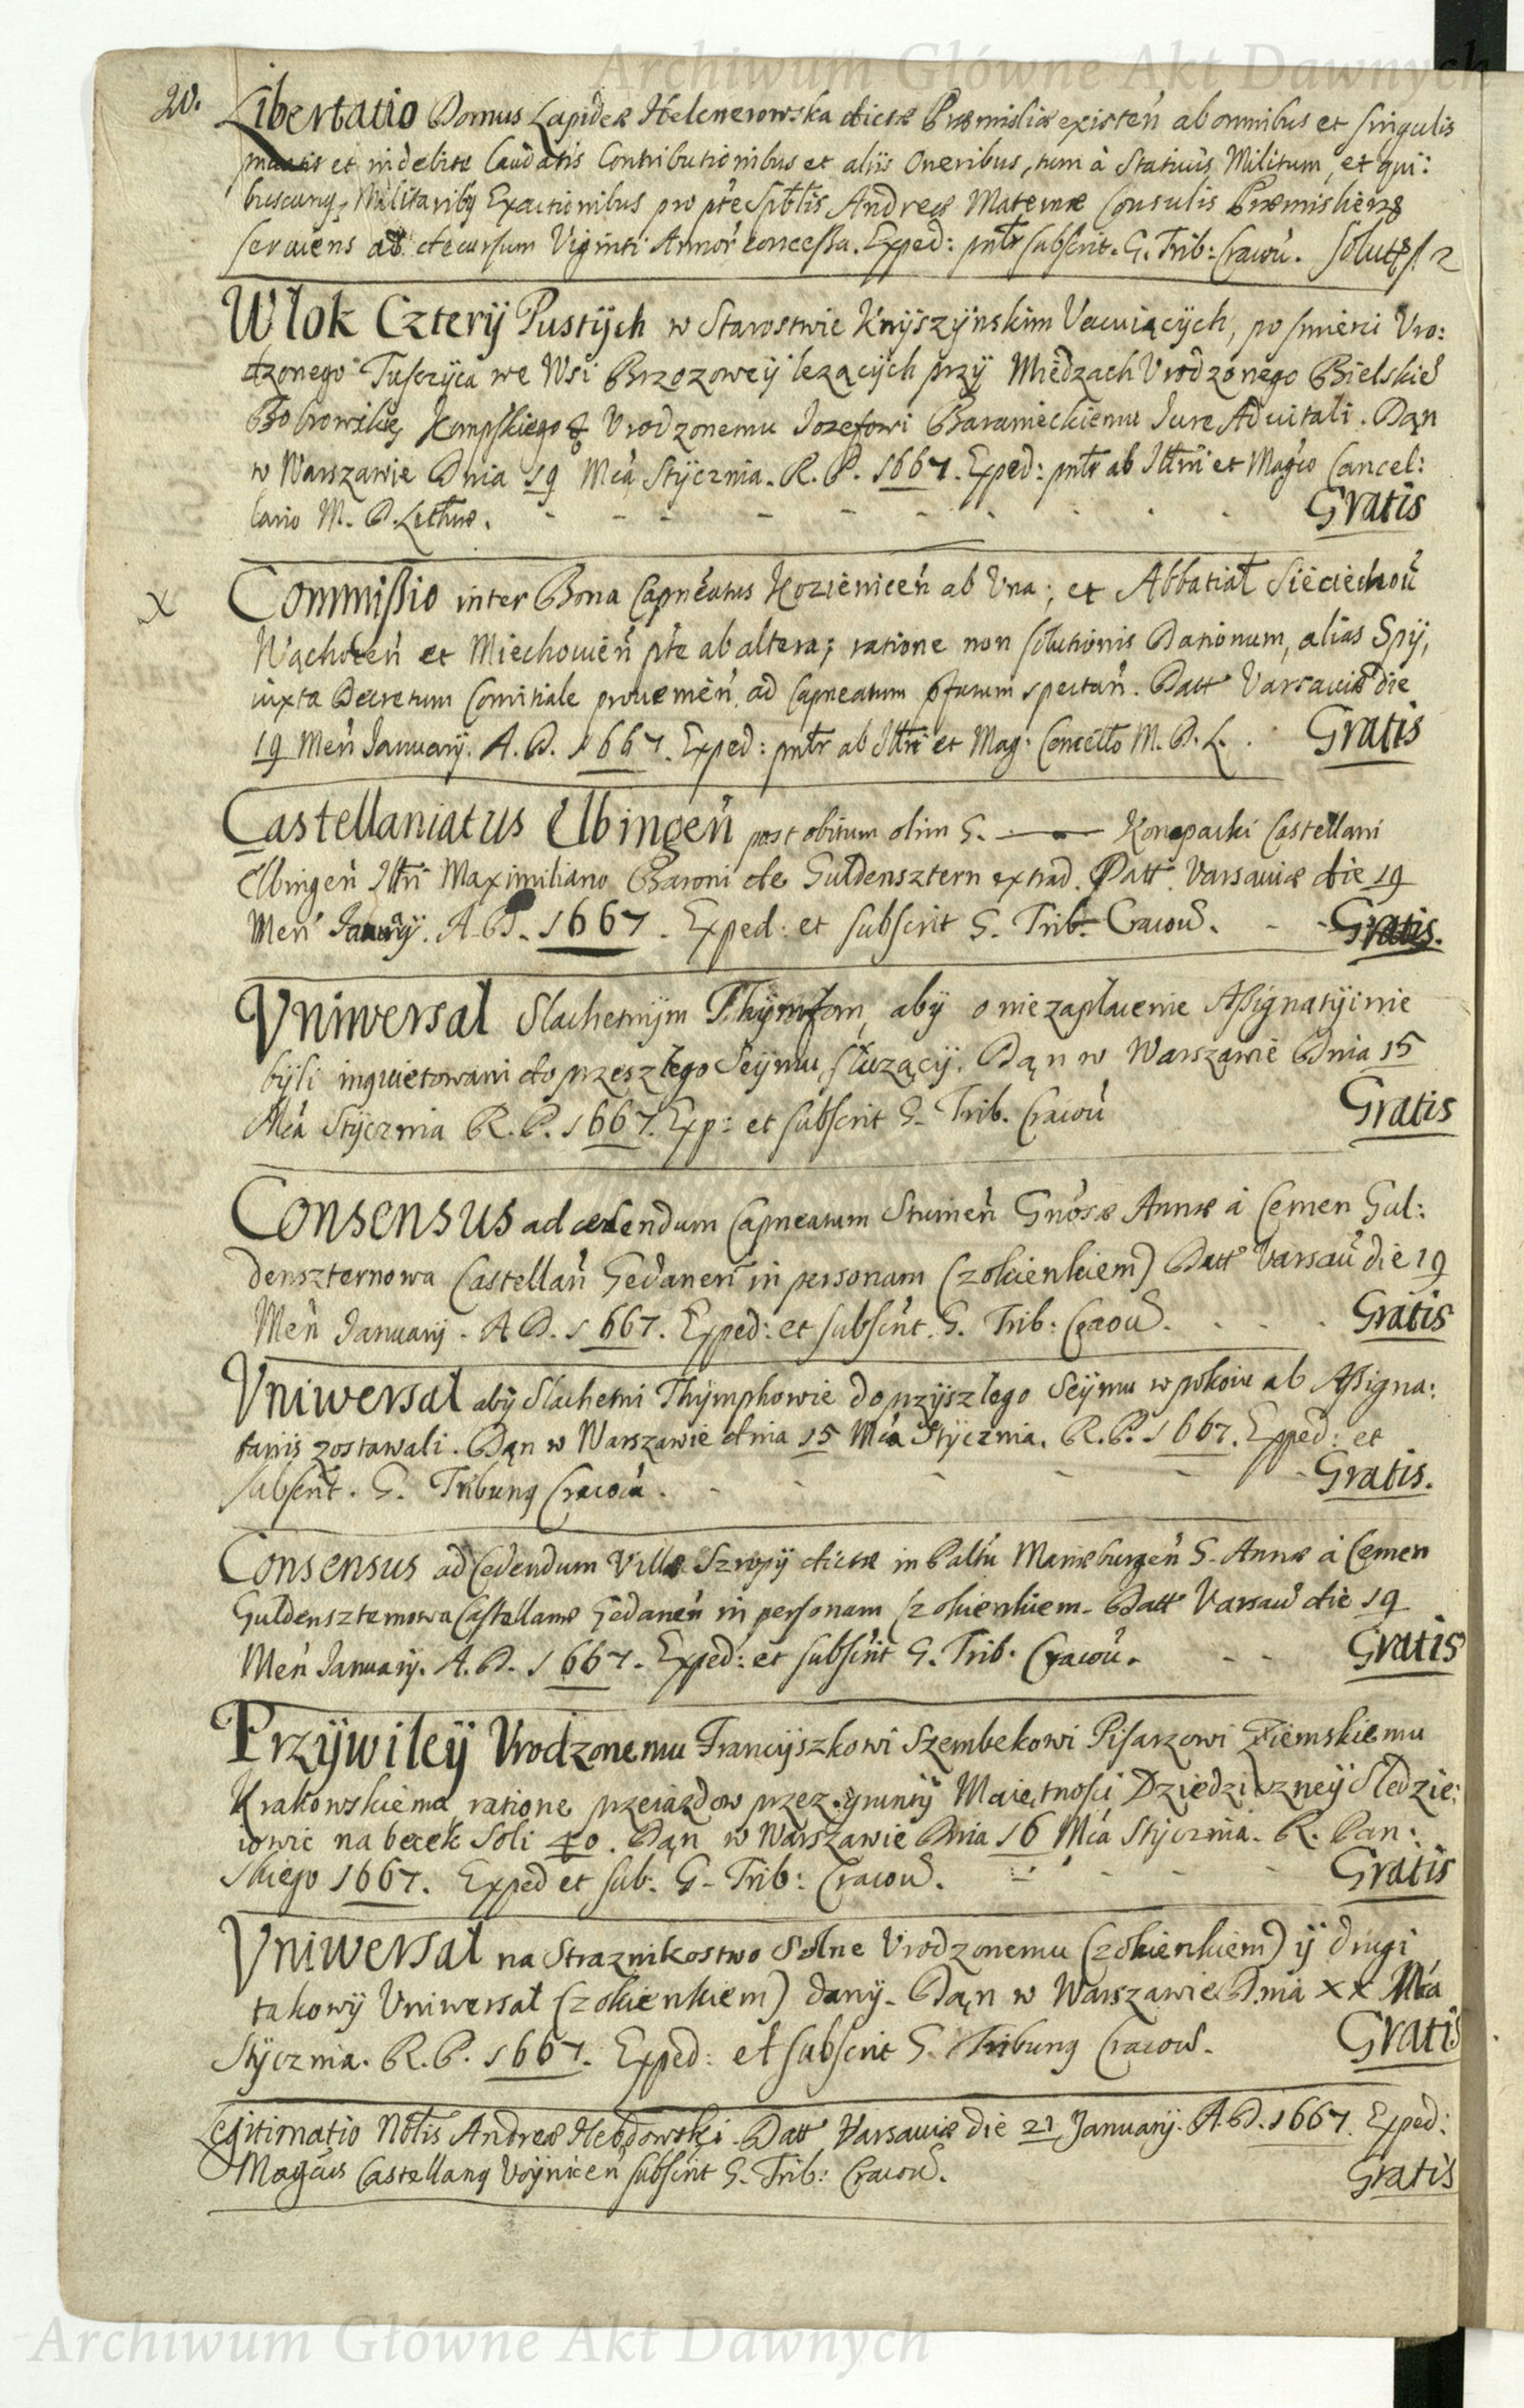 Archiwum Główne Akt Dawnych
20.
Libertatio Domus Lapideæ Helenerowska dictæ Præmisliæ existeń ab omnibus et singulis
et indebite laudatis Contributionibus et aliis Oneribus, tum à Stativis Militum, et qui:
buscunq, Militaribq Exactionibus pro pte Spttis Andreæ Maternæ Consulis Præmisliens
serviens ad decursum Viginti Annor concessa. Exped: pntr subscrit. G. Trib: Cracou. Solut f 2
Wlok Czterÿ Pustÿch w Starostwie Knÿszÿnskim Vacuiącÿch, po smierci Vro:
dzonego Tusczÿca we Wsi Brzozoweÿ lezącÿch przÿ Miedzach Vrodzonego Bielskieº
Bobrowskieº, Kempskiego & Vrodzonemu Iozefowi Baranieckiemu Iure Aduitali. Dąn
w Warszawie Dnia 19 Mcá Stÿcznia. R. P. 1667. Exped: pntr ab Illri et Magco Cancel:
lario M. D. Lithuæ. - - - - - - - - Gratis
X
Commissio inter Bona Capneatus Kozieniceń ab Vna; et Abbatiał Sieciechou
Wąchoceń et Miechouień pte ab altera; ratione non solutionis Dationum, alias Spÿ,
iuxta Decretum Comitiale proueniēń ad Capneatum pfatum spectań. Datt Varsauiæ die
19 Meń Januarÿ. A. D. 1667. Exped: pntr ab Illri et Mag: Cancello M. D. L. . Gratis
Castellaniatus Elbingeń post obitum olim G. —— Konopacki Castellani
Elbingeń Illri Maximiliano Baroni de Guldensztern extrad. Datt. Varsauiæ die 19
Meń Januarÿ. A. D. 1667. Exped: et subscrit G. Trib. Cracou. - - Gratis.
Vniwersał Slachetnÿm Thÿmfom, abÿ o niezapłacenie Assignatÿi nie
bÿli inquietowani do przeszłego Seÿmu, słuzącÿ. Dąn w Warszawie Dnia 15
Mcá Stÿcznia R. P. 1667. Exp: et subscrit G. Trib. Cracou Gratis
Consensus ad cedendum Capneatum Stumeń Gnosæ Annæ à Cemen Gul:
denszternowa Castellań Gedaneń in personam (z okienkiem) Datt Varsau die 19
Meń Januarÿ. A D. 1667. Exped: et subscrit. G. Trib: Cracou. . . . . Gratis
Vniwersał abÿ Slachetni Thÿmphowie do przÿszłego Seÿmu w pokoiu ab Assigna:
tariis zostawali. Dąn w Warszawie dnia 15 Mcá Stÿcznia. R. P. 1667. Exped: et
subscrit. G. Tribunq Cracou. - - - - - - Gratis.
Consensus ad Cedendum Villæ Szropÿ dictæ in Paltu Marieburgeń G. Annæ à Cemen
Guldenszternowa Castellanæ Gedaneń in personam (z okienkiem. Datt Varsau die 19
Meń Januarÿ. A. D. 1667. Exped: et subscrit G. Trib. Cracou. - - Gratis
Przÿwileÿ Vrodzonemu Francÿszkowi Szembekowi Pisarzowi Ziemskiemu
Krakowskiemu, ratione przeiazdow przez gruntÿ Maiętnosci Dziedziczneÿ Sledzie:
iowic na beczek Soli 40. Dąn w Warszawie Dnia 16 Mcá Stÿcznia. R. Pan:
skiego 1667. Exped et sub: G. Trib: Cracou. - - - - Gratis
Vniwersał na Straznikostwo Solne Vrodzonemu (z okienkiem) ÿ drugi
takowÿ Vniwersał (z okienkiem) danÿ. Dąn w Warszawie Dnia XX Mcá
Stÿcznia. R. P. 1667. Exped: et subscrit G. Tribunq Cracou. Gratis
Legitimatio Nbtis Andreæ Hebdowski. Datt Varsauiæ die 21 Januarÿ. A. D. 1667. Exped:
Magcus Castellanq Voÿniceń subscrit G. Trib: Cracou. Gratis
Archiwum Główne Akt Dawnych